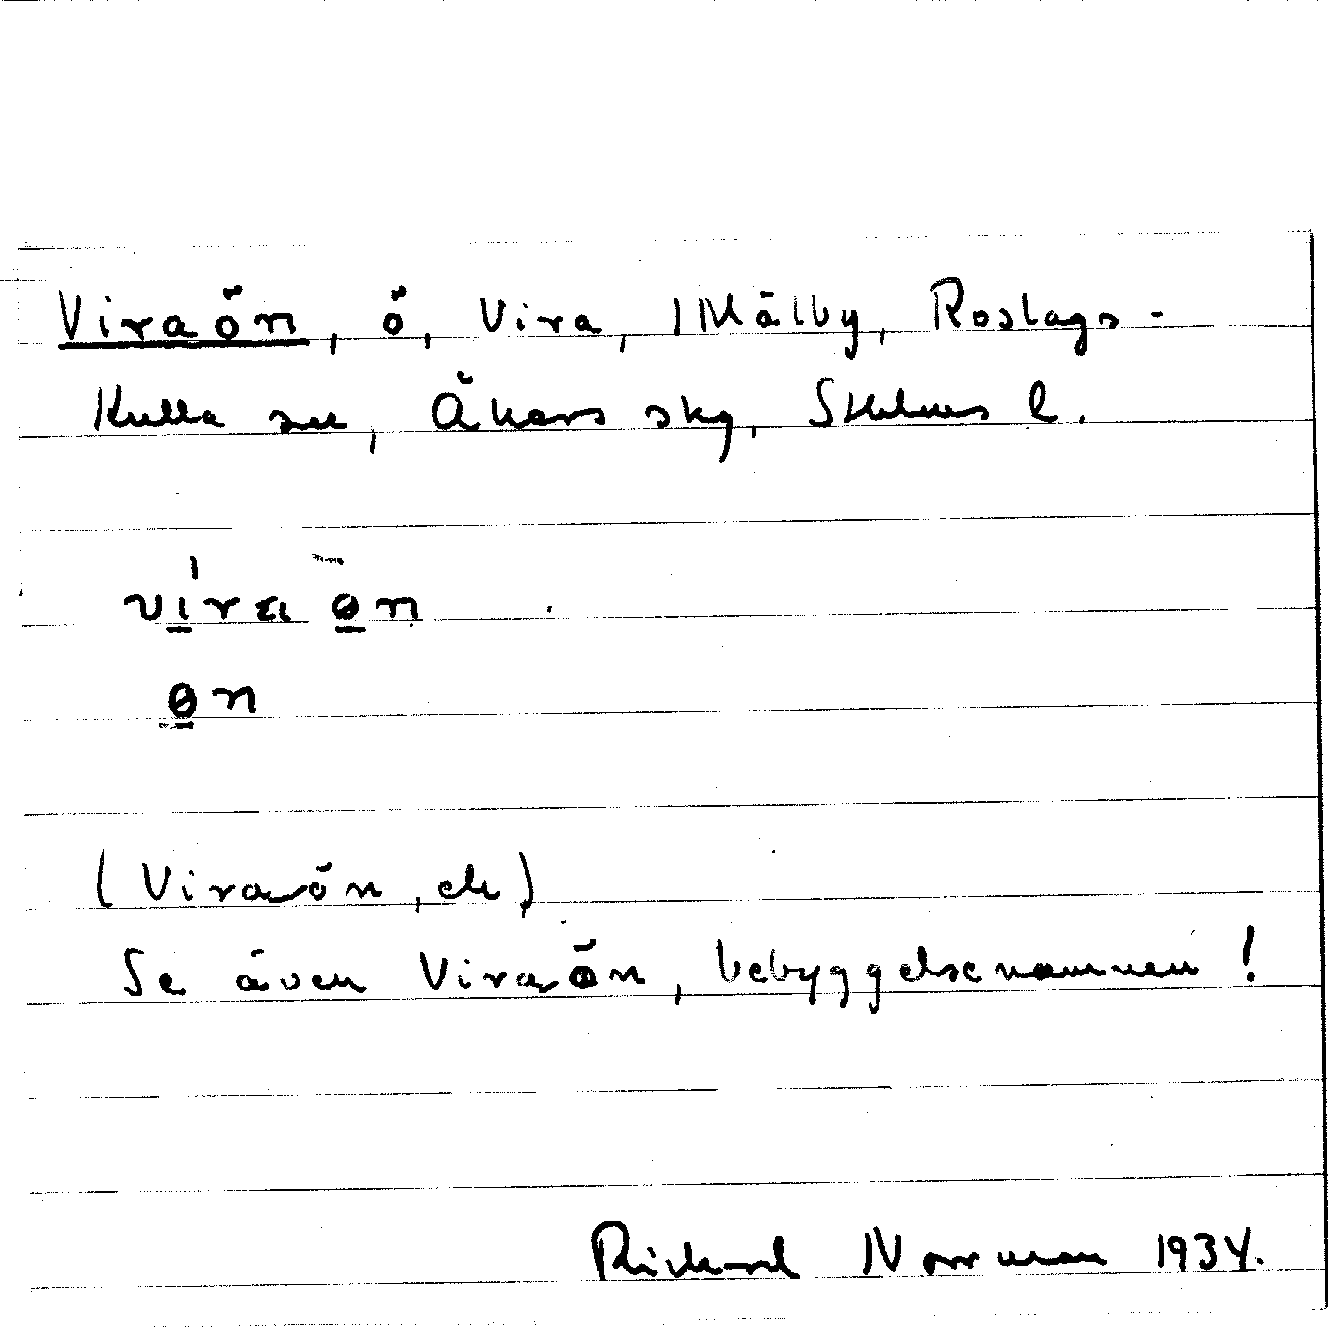 Viraön, ö, Vira, Mälby, Roslags-
Kulla sn, Åkers skg, Sthlms l.
vi̲ra ө̲n
ө̲n
(Viraön, ek)
Se även Viraön, bebyggelsenamnen!
Rickard Norrman 1934.